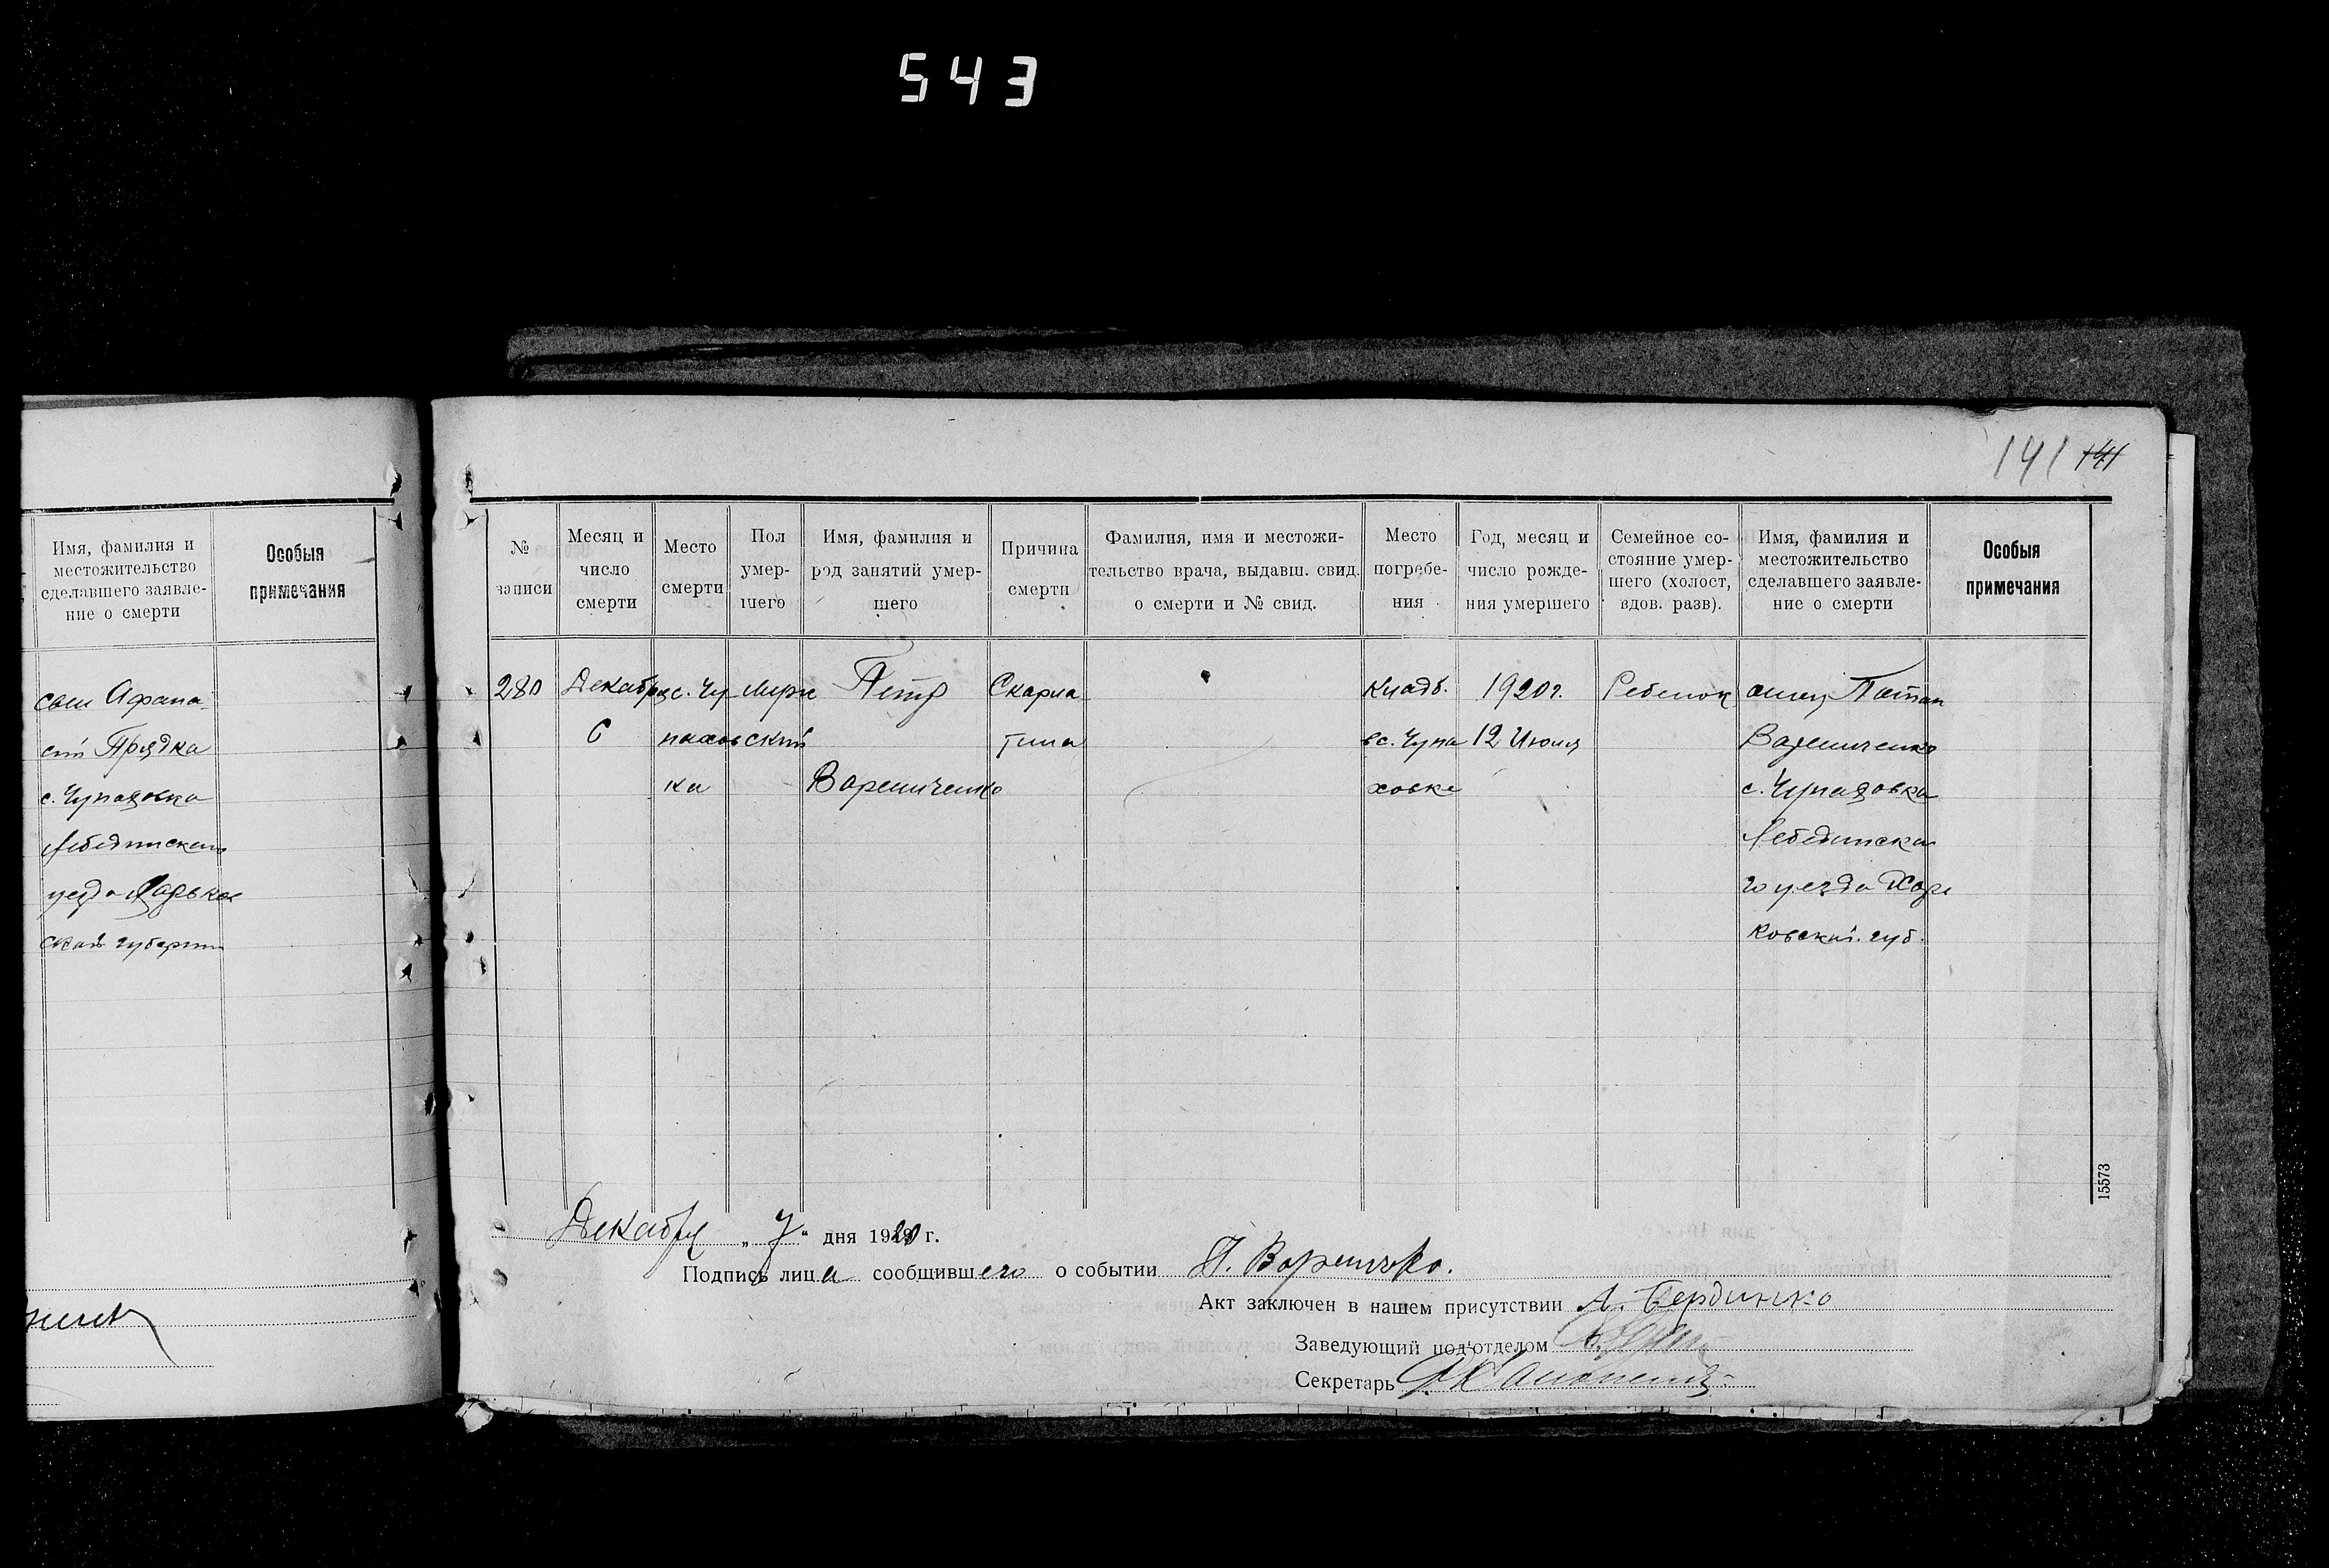 543
Имя, фамилия и
местожительство
сделавшего заявле-
ние о смерти
Особыя
примечания
сын Афана
сий Прядка
с. Чупаховка
Лебединского
уезда Харьков
ской губернии
141 141
№
записи
Месяц и
число
смерти
Место
смерти
Пол
умер-
шего
Имя, фамилия и
род занятий умер-
шего
Причина
смерти
Фамилия, имя и местожи-
тельство врача, выдавш. свид.
о смерти и № свид.
Место
погребе-
ния
Год, месяц и
число рожде-
ния умершего
Семейное со-
стояние умер-
шего (холост,
вдов. разв).
Имя, фамилия и
местожительство
сделавшего заявле-
ние о смерти
Особыя
примечания
280
Декабря
6
с. Чу
пахов
ка
Муж
ский
Петр
Варениченко
Скарла
тина
Кладб.
в с. Чупа
ховке
1920 г.
12 Июля
Ребенок
отец Потап
Варениченко
с. Чупаховка
Лебединска
го уезда Харь
ковской губ.
Декабря „7“ дня 1920 г.
Подпись лица сообщившего о событии П. Вареничко.
Акт заключен в нашем присутствии А. Бердинко
Заведующий под'отделом
Секретарь
15573